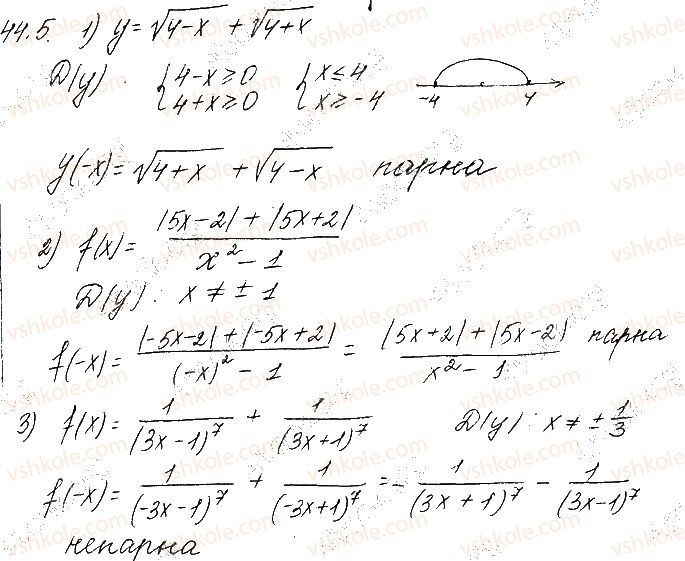 44.5. 1) y = √(4-x) + √(4+x)
D(y). { 4-x ≥ 0 { x ≤ 4
4+x ≥ 0 x ≥ -4 -4 4
y(-x) = √(4+x) + √(4-x) парна
2) f(x) = (|5x-2| + |5x+2|)/(x² - 1)
D(y): x ≠ ±1
f(-x) = (|-5x-2| + |-5x+2|)/((-x)² - 1) = (|5x+2| + |5x-2|)/(x² - 1) парна
3) f(x) = 1/(3x-1)⁷ + 1/(3x+1)⁷ D(y): x ≠ ±1/3
f(-x) = 1/(-3x-1)⁷ + 1/(-3x+1)⁷ = - 1/(3x+1)⁷ - 1/(3x-1)⁷
непарна
vshkole.com